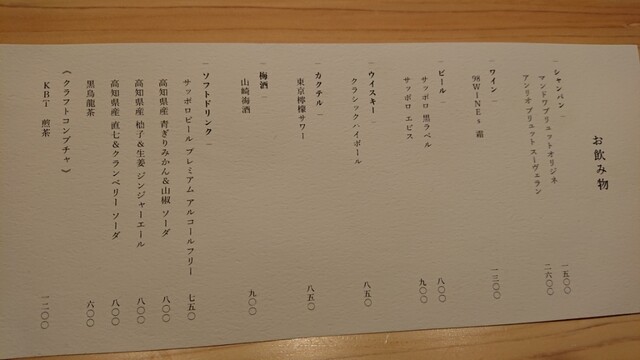 お飲み物
― シャンパン ―
マンドワ ブリュット オリジネ 一五〇〇
アンリオ ブリュット スーヴェラン 二六〇〇
― ワイン ―
98WINEs 霜 一三〇〇
― ビール ―
サッポロ 黒ラベル 八〇〇
サッポロ エビス 九〇〇
― ウイスキー ―
クラシックハイボール 八五〇
― カクテル ―
東京檸檬サワー 八五〇
― 梅酒 ―
山崎梅酒 九〇〇
― ソフトドリンク ―
サッポロビール プレミアム アルコールフリー 七五〇
高知県産 青ぎりみかん&山椒 ソーダ 八〇〇
高知県産 柚子&生姜 ジンジャーエール 八〇〇
高知県産 直七&クランベリー ソーダ 八〇〇
黒烏龍茶 六〇〇
《クラフトコンブチャ》
KBT 煎茶 一二〇〇